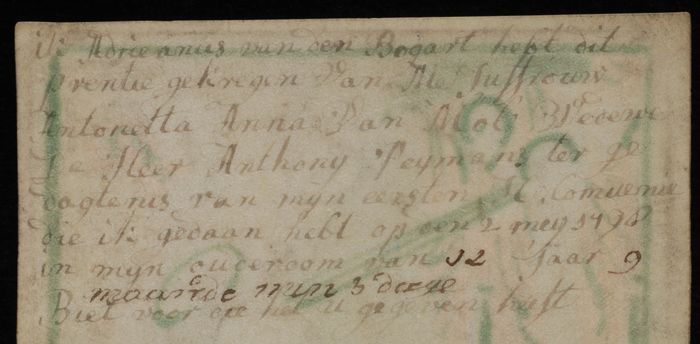 ik Adrieanus van den Bogart hebt dit
prentie gekregen van Me Juffrouw
Antonetta Anna Van Mol Wedewe
De Heer Anthony Peymans ter ge
dagtenis van myn eersten H Comuenie
die ik gedaan hebt op den 2 mey 1798
in myn ouderom van 12 Jaar 9
maande min 3 dage
Bid voor die het u gegeven heeft